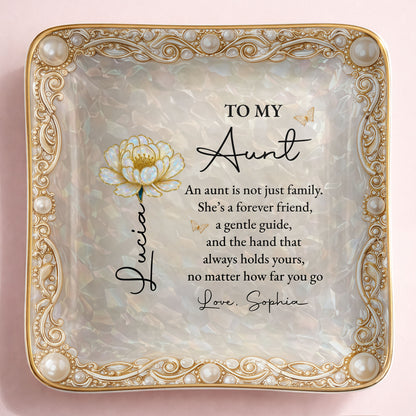 TO MY
Aunt
An aunt is not just family.
She's a forever friend,
a gentle guide,
and the hand that
always holds yours,
no matter how far you go
Love, Sophia
Lucia